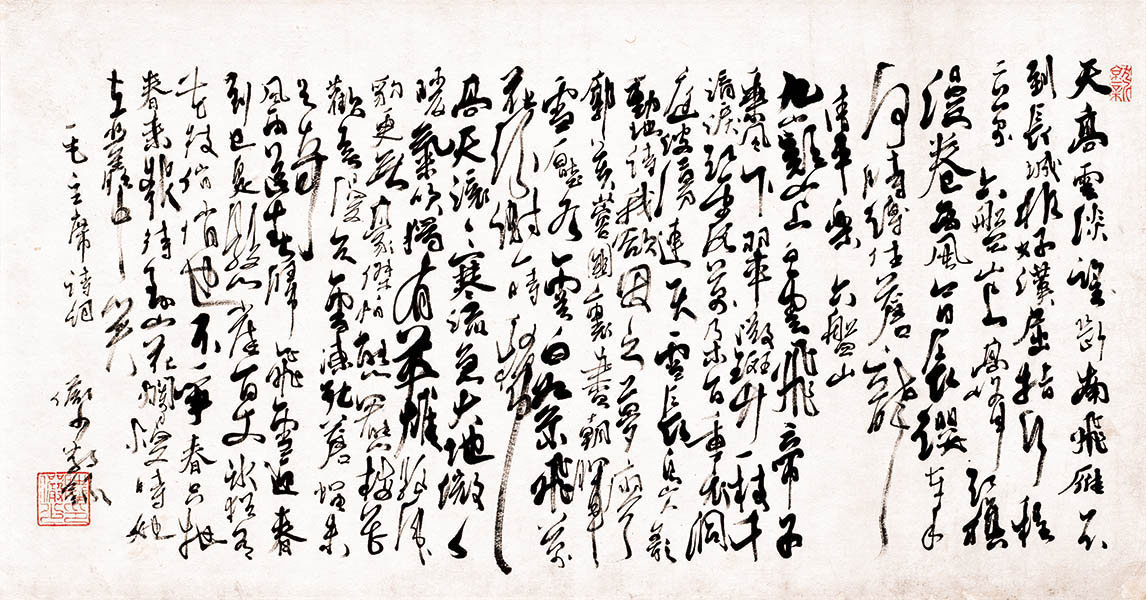 天高雲淡望斷南飛雁不
到長城非好漢屈指行程
二萬六盤山上高峰紅旗
漫卷西風今日長纓在手
何時縛住蒼龍
清平樂 六盤山
九嶷山上白雲飛帝子
乘風下翠微斑竹一枝千
滴淚紅霞萬朵百重衣洞
庭波涌連天雪長島人歌
動地詩我欲因之夢寥
廓芙蓉國裏盡朝暉
雪壓冬雲白絮飛萬
花紛謝一時稀
高天滾滾寒流急大地微微
暖氣吹獨有英雄驅虎
豹更無豪傑怕熊羆梅花
歡喜漫天雪凍死蒼蠅未
足奇
風雨送春歸飛雪迎春
到已是懸崖百丈冰猶有
花枝俏俏也不爭春只把
春來報待到山花爛漫時她
在叢中笑
毛主席詩詞
儼少敬錄